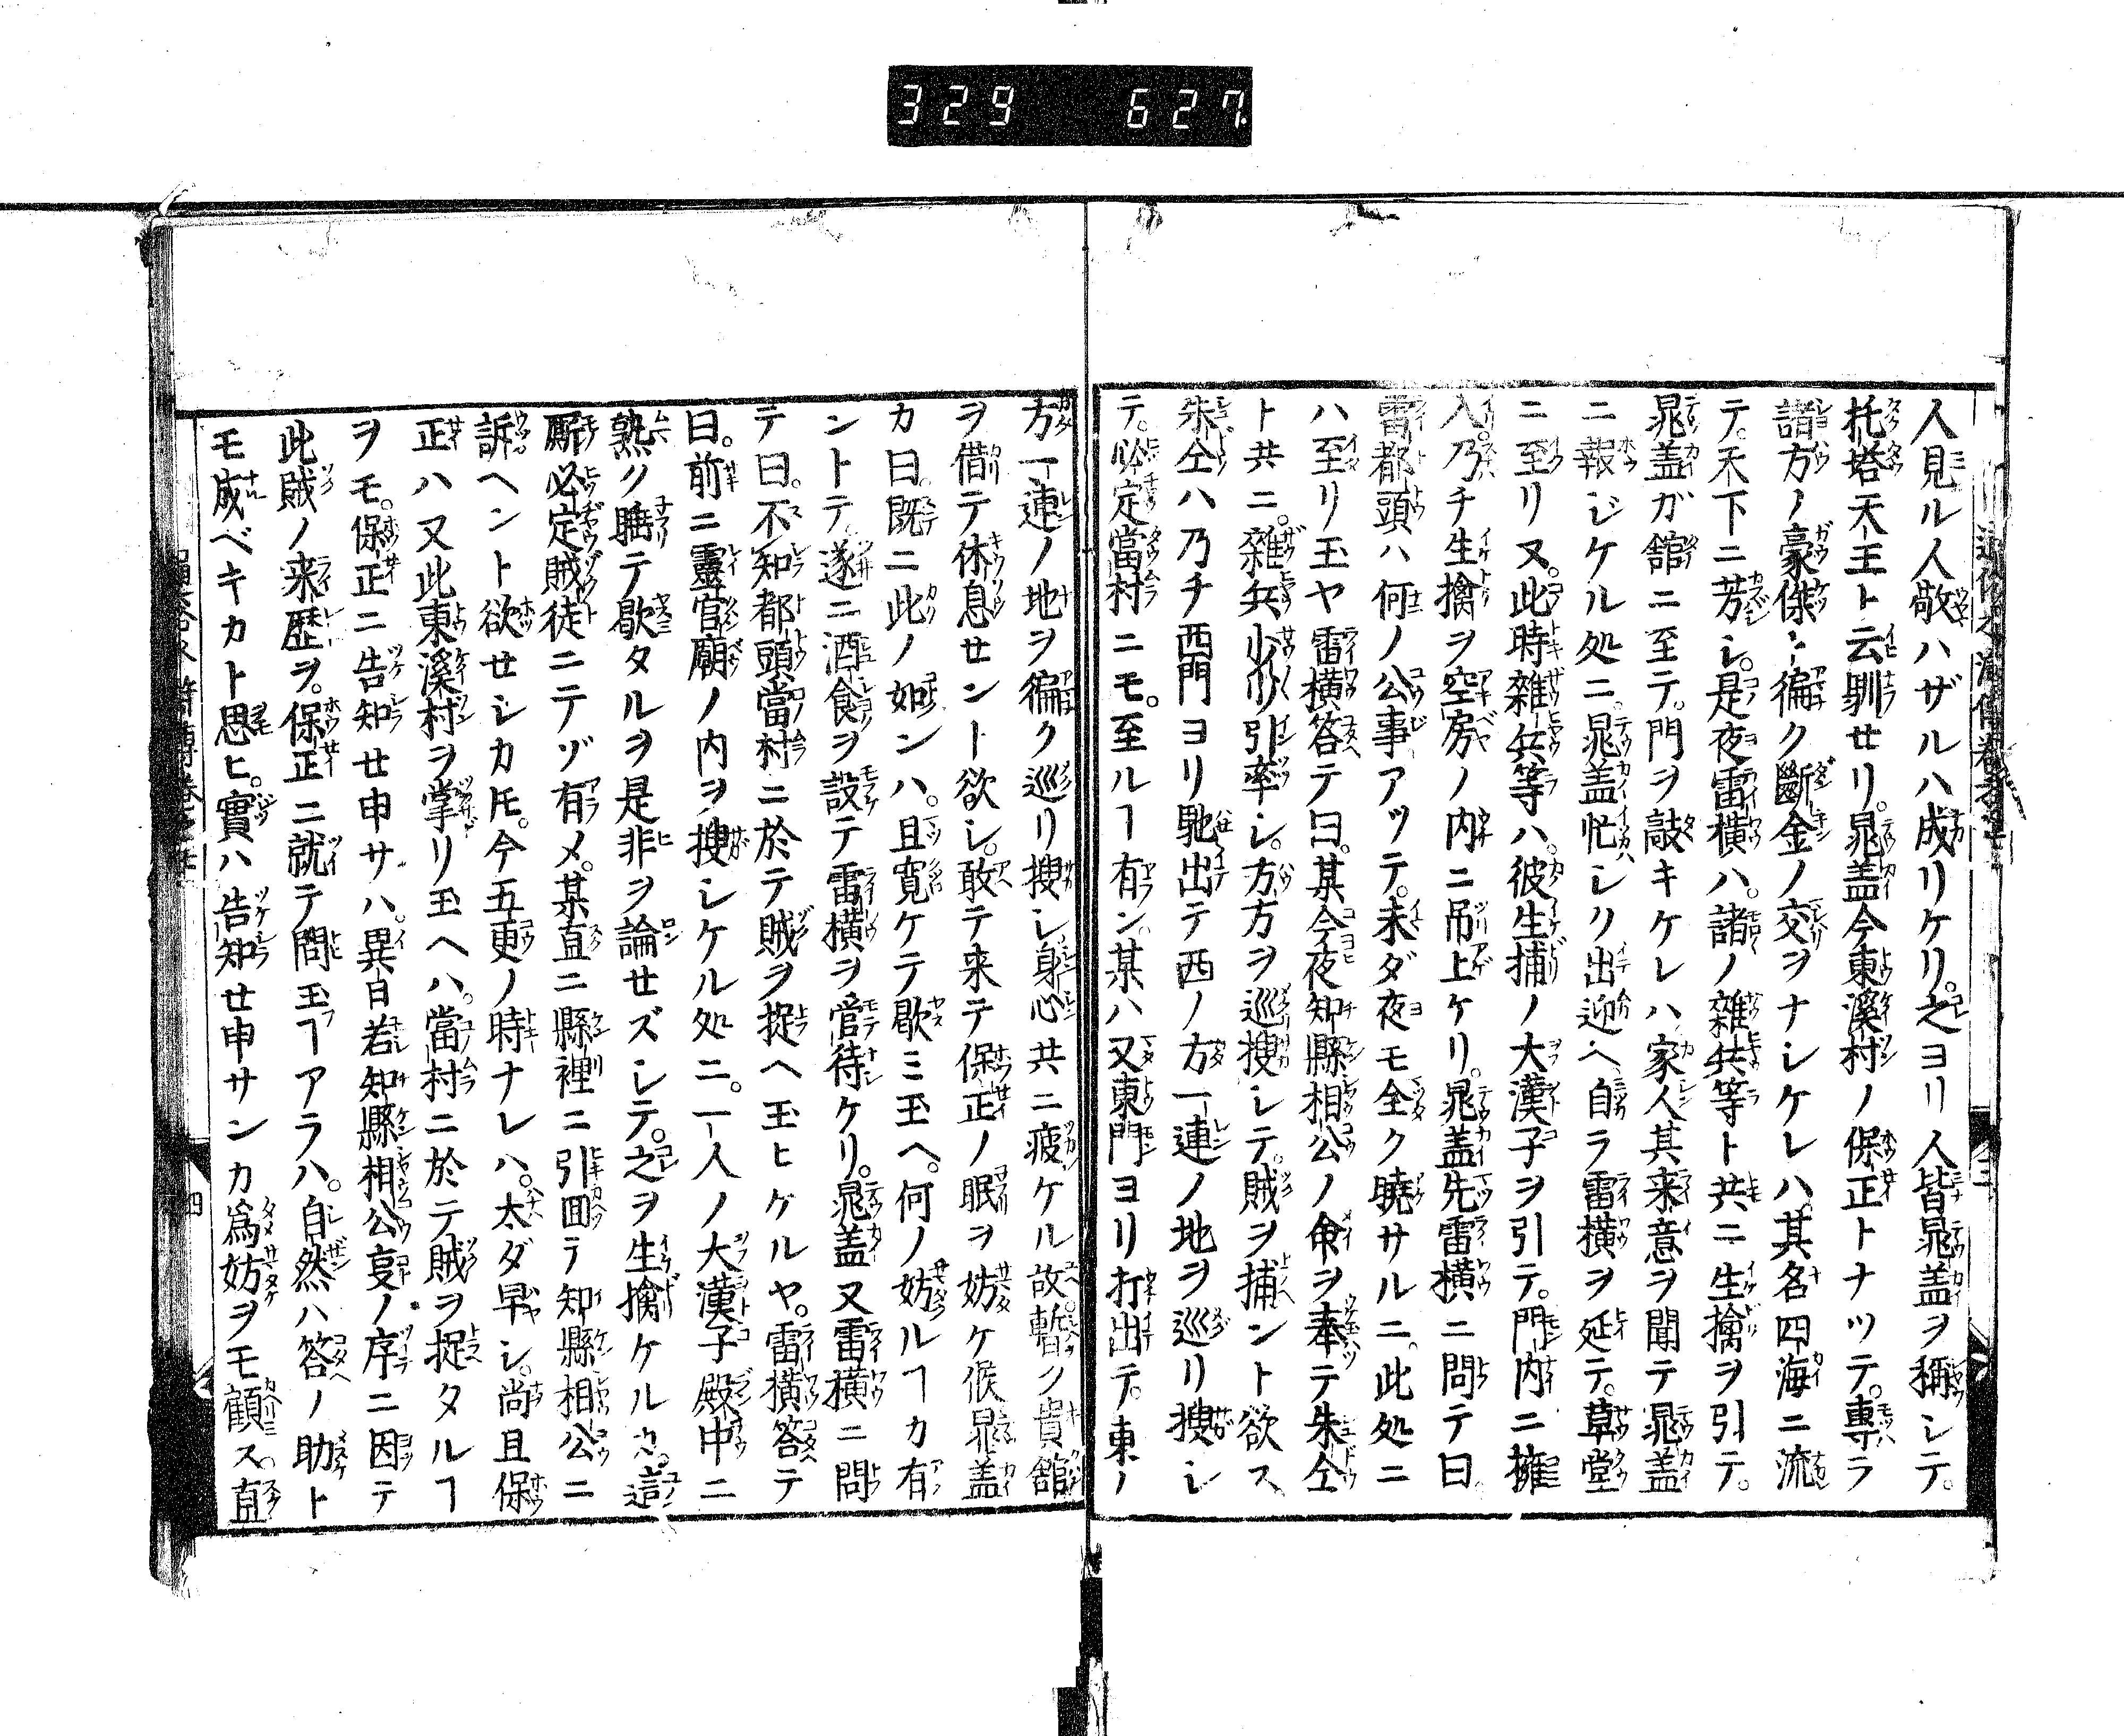 329 627
人見ル人敬ハザルハ成リケリ。之ヨリ人皆晁盖ヲ稱シテ。
托塔天王ト云馴セリ。晁盖今東溪村ノ保正トナツテ。專ラ
諸方ノ豪傑ト徧ク斷金ノ交ヲナシケレハ。其名四海ニ流
テ。天下ニ芳シ。是夜雷横ハ。諸ノ雜兵等ト共ニ生擒ヲ引テ。
晁盖ガ舘ニ至テ。門ヲ敲キケレハ家人其来意ヲ聞テ晁盖
ニ報ジケル処ニ。晁盖忙シク出迎ヘ自ラ雷横ヲ延テ。草堂
ニ至リ又。此時雜兵等ハ。彼生捕ノ大漢子ヲ引テ。門内ニ擁
入。乃チ生擒ヲ空房ノ内ニ吊上ケリ。晁盖先雷横ニ問テ曰。
雷都頭ハ何ノ公事アツテ。未ダ夜モ全ク曉サルニ。此処ニ
ハ至リ玉ヤ雷横答テ曰。某今夜知縣相公ノ命ヲ奉テ朱仝
ト共ニ。雜兵少〻引率シ。方方ヲ巡搜シテ。賊ヲ捕ント欲ス。
朱仝ハ乃チ西門ヨリ馳出テ西ノ方一連ノ地ヲ巡リ搜シ
テ。必定當村ニモ。至ルヿ有ン。某ハ又東門ヨリ打出テ。東ノ
方一連ノ地ヲ徧ク巡リ搜シ。身心共ニ疲ケル故。暫ク貴舘
ヲ借テ休息セント欲シ。敢テ来テ保正ノ眠ヲ妨ケ候晁盖
カ曰。既ニ此ノ如ンハ。且寛ケテ歇ミ玉ヘ。何ノ妨ルヿカ有
ントテ。遂ニ酒食ヲ設テ雷横ヲ管待ケリ。晁盖又雷横ニ問
テ曰。不知都頭當村ニ於テ賊ヲ捉ヘ玉ヒケルヤ。雷横答テ
曰。前ニ靈官廟ノ内ヲ搜シケル処ニ。一人ノ大漢子殿中ニ
熟ク睡テ歇タルヲ是非ヲ論セズシテ。之ヲ生擒ケルカ。這
厮必定賊徒ニテゾ有メ。某直ニ縣裡ニ引回テ知縣相公ニ
訴ヘント欲セシカ𪜈。今五更ノ時ナレハ。太ダ早シ。尚且保
正ハ又此東溪村ヲ掌リ玉ヘハ。當村ニ於テ賊ヲ捉タルヿ
ヲモ。保正ニ告知セ申サハ。異日若知縣相公㕝ノ序ニ因テ
此賊ノ来歴ヲ。保正ニ就テ問玉フヿアラハ。自然ハ答ノ助ト
モ成ベキカト思ヒ。實ハ告知セ申サンカ爲妨ヲモ顧ス。直